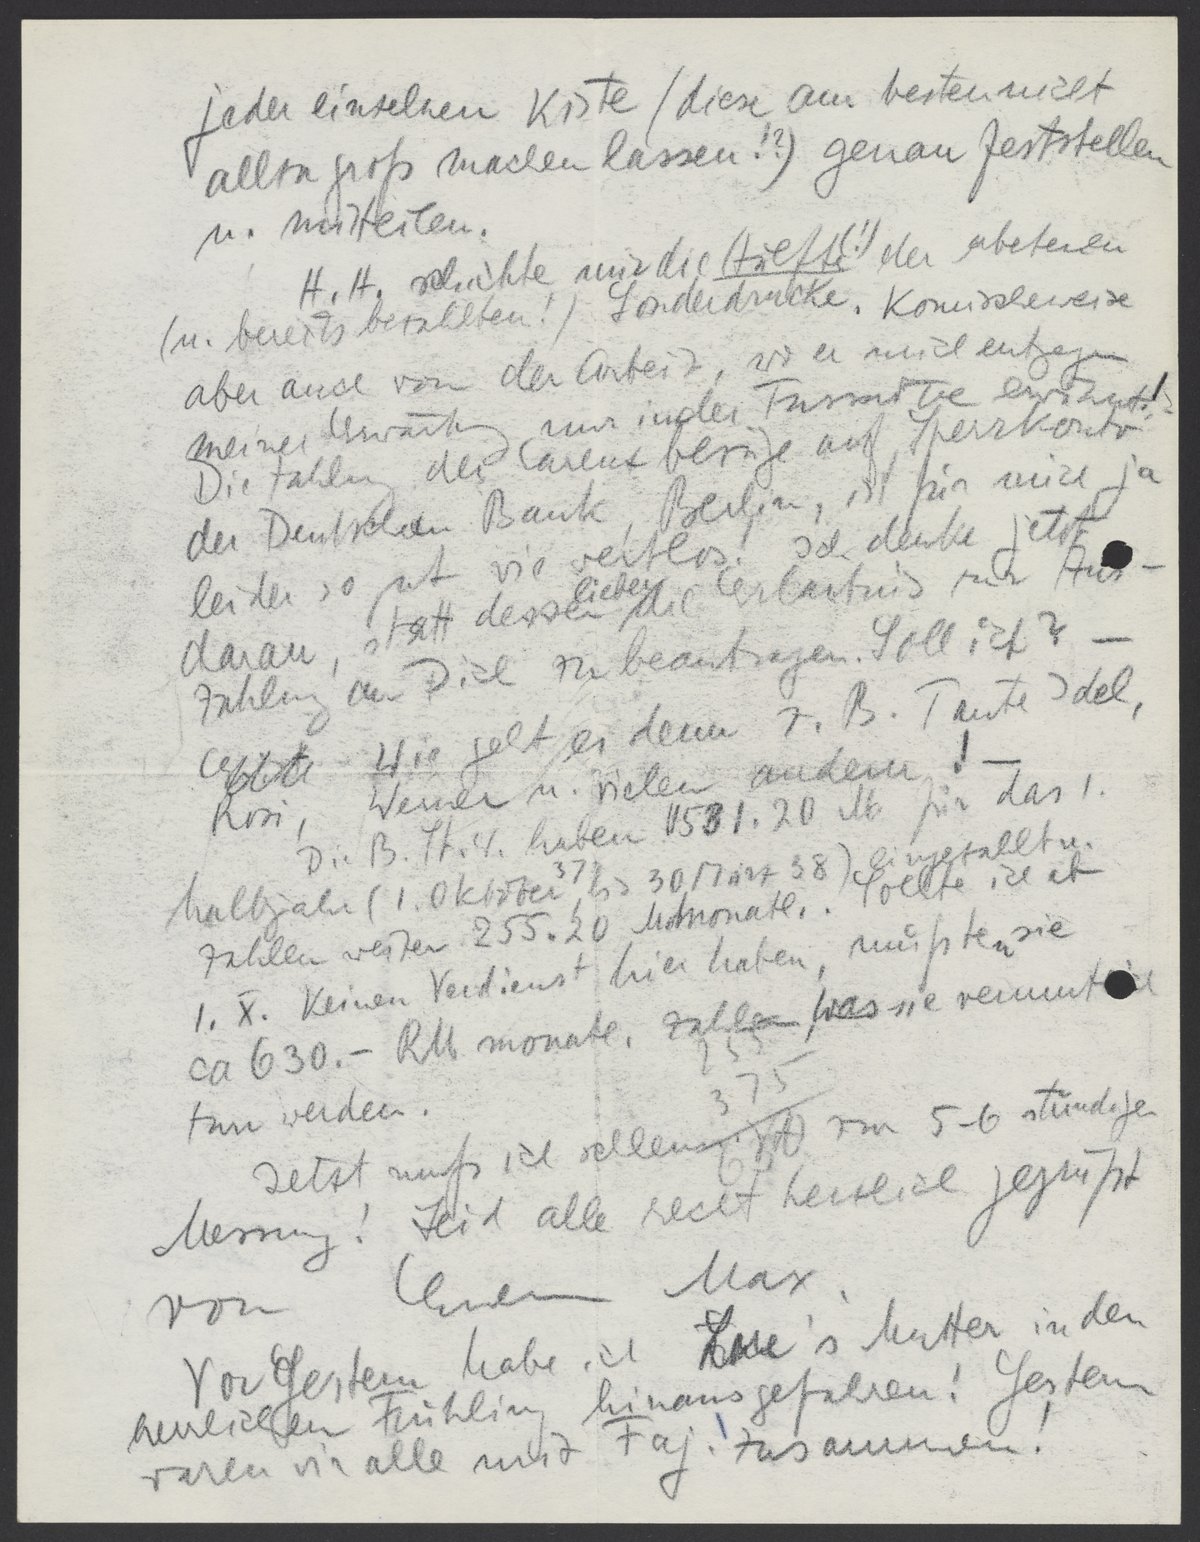 jeder einzelnen Kiste (diese am besten nicht
allzu groß machen lassen!?) genau feststellen
u. mitteilen.
H. H. schickte mir die Hälfte (!) der erbetenen
(u. bereits bezahlten!) Sonderdrucke. Komischerweise
aber auch von der Arbeit, wo er mich entgegen
meiner Erwartung nur in der Fussnote erwähnt!
Die Zahlung der Carenzbezüge auf Sperrkonto
der Deutschen Bank, Berlin, ist für mich ja
leider so gut wie wertlos! Ich denke jetzt
daran, statt dessen lieber die Erlaubnis zur Aus-
zahlung an Dich zu beantragen. Soll ich? —
Wie geht es denn z. B. Tante Idel,
Rosi, Werner u. vielen andern! —
Die B. St. 4. haben 1531.20 M für das 1.
halbjahr (1. Oktober 37 bis 30 März 38) eingezahlt u.
zahlen weiter 255.20 M monatl. Sollte ich ab
1. X. keinen Verdienst hier haben, müßten sie
ca 630.- RM monatl. zahlen, was sie vermutlich
tun werden.
255
375
630
Jetzt muß ich schleunigst zur 5-6 stündigen
Messung! Seid alle recht herzlich gegrüßt
von Eurem Max.
Vor Gestern habe ich 's Mutter in den
herrlichen Frühling hinausgefahren! Gestern
waren wir alle mit Faj. zusammen!